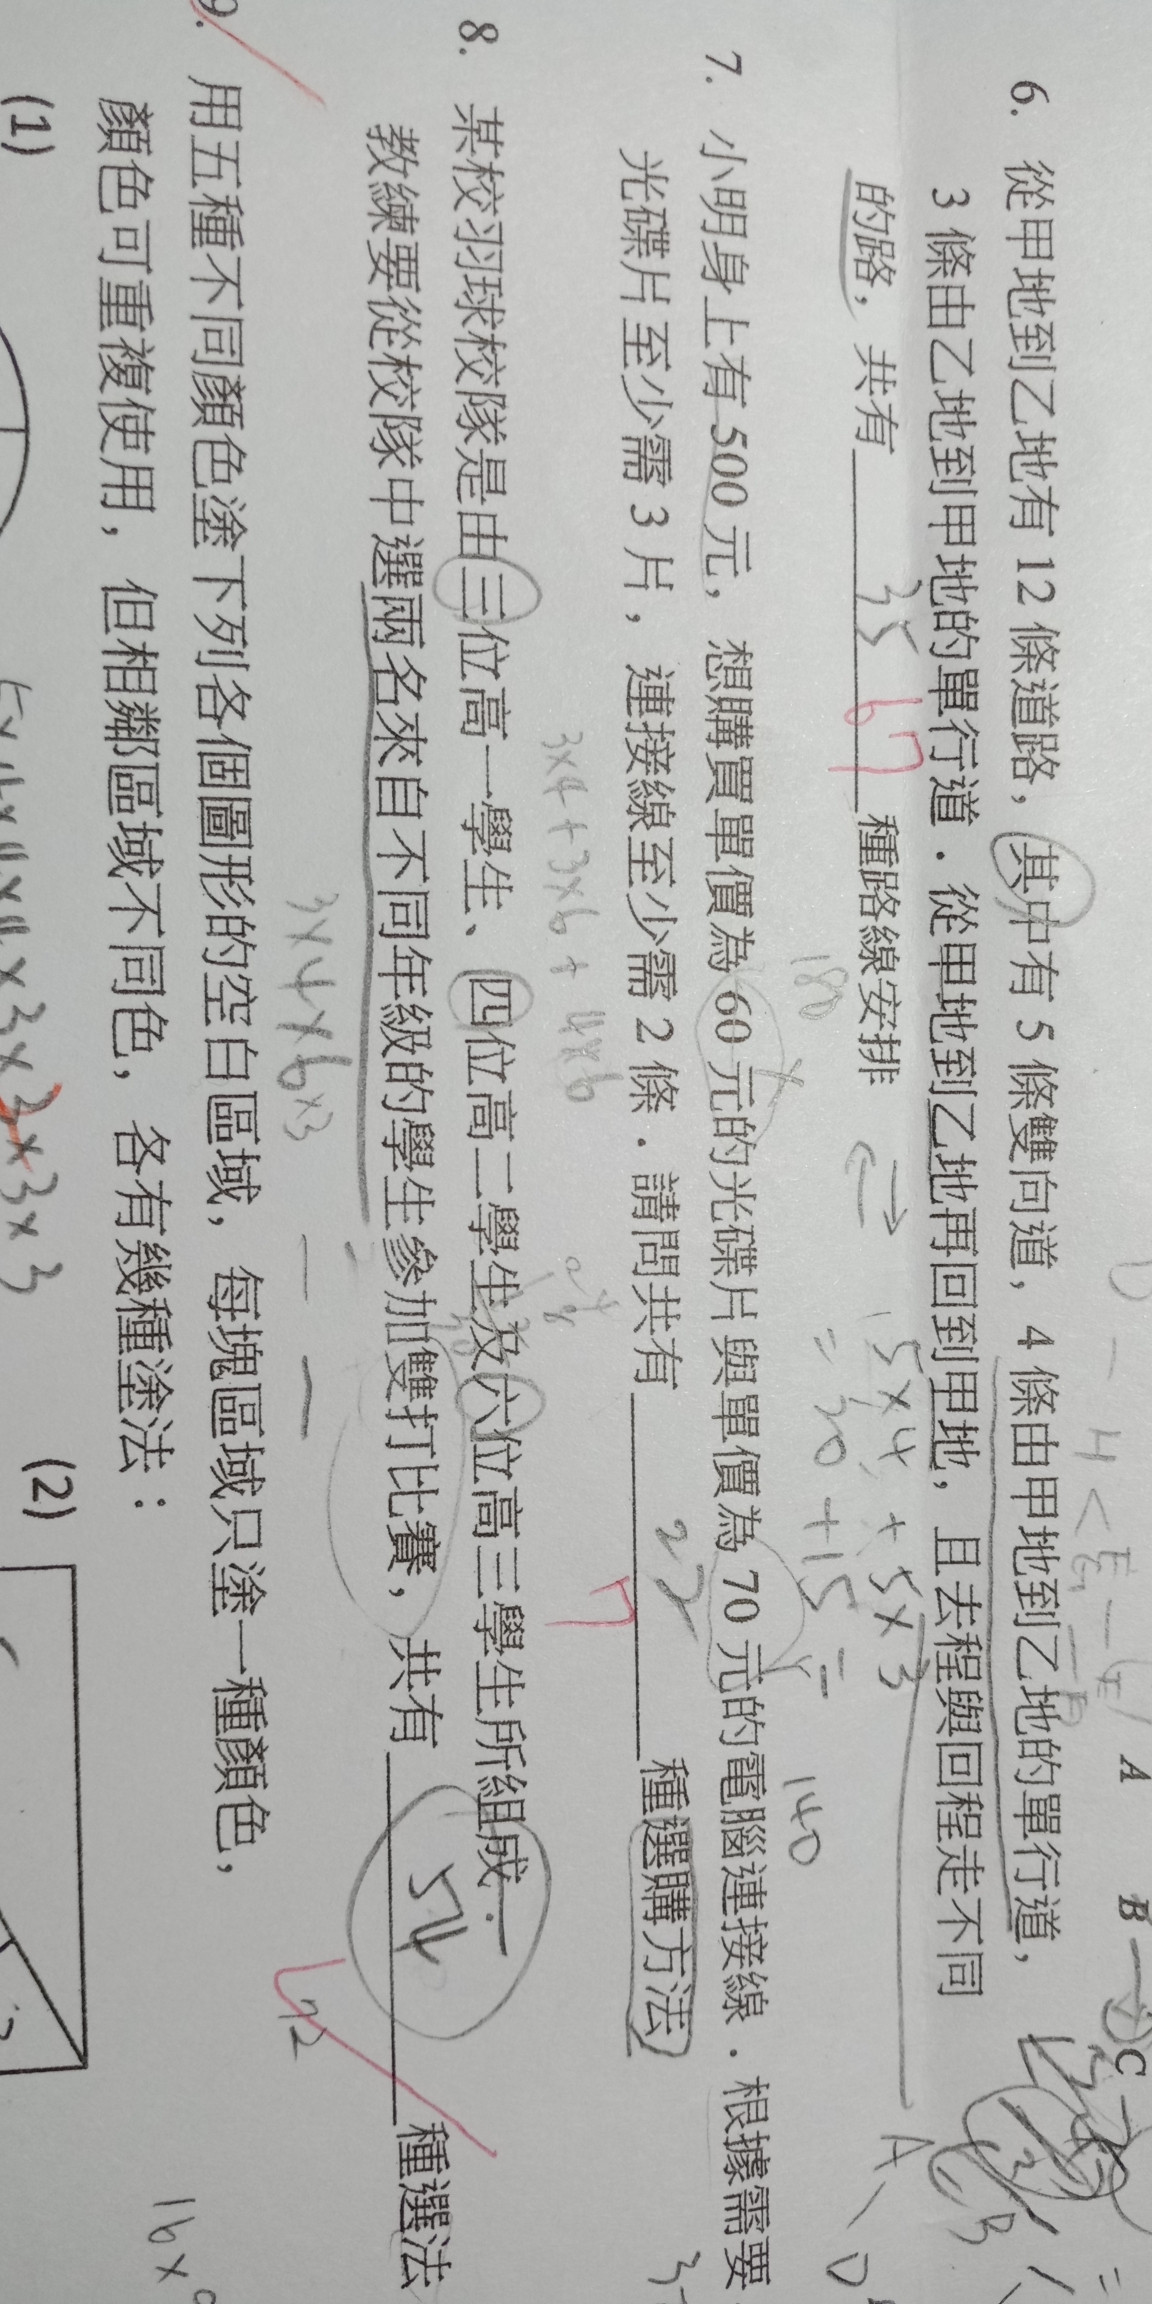 6. 從甲地到乙地有 12 條道路，其中有 5 條雙向道，4 條由甲地到乙地的單行道，
3 條由乙地到甲地的單行道．從甲地到乙地再回到甲地，且去程與回程走不同
的路，共有 35 67 種路線安排
5×4 + 5×3
= 20 + 15 =
180
140
7. 小明身上有 500 元，想購買單價為 60 元的光碟片與單價為 70 元的電腦連接線．根據需要，
光碟片至少需 3 片，連接線至少需 2 條．請問共有 22 7 種選購方法
3×4 + 3×6 + 4×6
8. 某校羽球校隊是由三位高一學生、四位高二學生及六位高三學生所組成．
教練要從校隊中選兩名來自不同年級的學生參加雙打比賽，共有 54 種選法
3×4×6×3
72
9. 用五種不同顏色塗下列各個圖形的空白區域，每塊區域只塗一種顏色，
顏色可重複使用，但相鄰區域不同色，各有幾種塗法：
(1) (2)
A B C